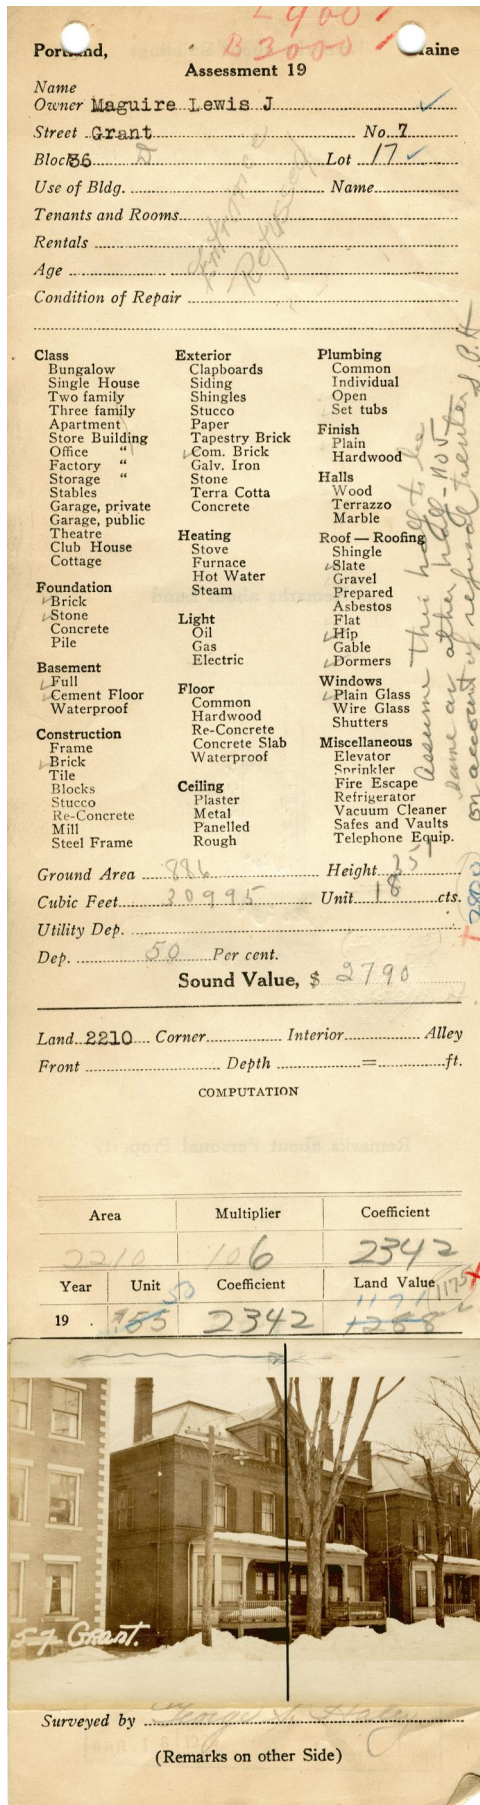 L 900 /
B 3000 /
Portland, Maine
Assessment 19
Name
Owner Maguire Lewis J
Street Grant No. 7
Block 36 D Lot 17
Use of Bldg. Name
Tenants and Rooms
Rentals
Age
Condition of Repair
Entrance
Refused
Class
Bungalow
Single House
Two family
Three family
Apartment
Store Building
Office "
Factory "
Storage "
Stables
Garage, private
Garage, public
Theatre
Club House
Cottage
Foundation
Brick
Stone
Concrete
Pile
Basement
Full
Cement Floor
Waterproof
Construction
Frame
Brick
Tile
Blocks
Stucco
Re-Concrete
Mill
Steel Frame
Exterior
Clapboards
Siding
Shingles
Stucco
Paper
Tapestry Brick
Com. Brick
Galv. Iron
Stone
Terra Cotta
Concrete
Heating
Stove
Furnace
Hot Water
Steam
Light
Oil
Gas
Electric
Floor
Common
Hardwood
Re-Concrete
Concrete Slab
Waterproof
Ceiling
Plaster
Metal
Panelled
Rough
Plumbing
Common
Individual
Open
Set tubs
Finish
Plain
Hardwood
Halls
Wood
Terrazzo
Marble
Roof — Roofing
Shingle
Slate
Gravel
Prepared
Asbestos
Flat
Hip
Gable
Dormers
Windows
Plain Glass
Wire Glass
Shutters
Miscellaneous
Elevator
Sprinkler
Fire Escape
Refrigerator
Vacuum Cleaner
Safes and Vaults
Telephone Equip.
Assume this half to be
same as other half - no 5
on account of refusal to enter
Ground Area 886 Height 35'
Cubic Feet 30995 Unit 18 cts.
Utility Dep.
Dep. 50 Per cent.
Sound Value, $ 2790
+ 2800
Land 2210 Corner Interior Alley
Front Depth = ft.
COMPUTATION
Remarks about Personal Property
Area Multiplier Coefficient
2210 106 2342
Year Unit Coefficient Land Value
50 1171 1175 +
19 . .55 2342 1288
5-7 Grant.
Surveyed by George
(Remarks on other Side)